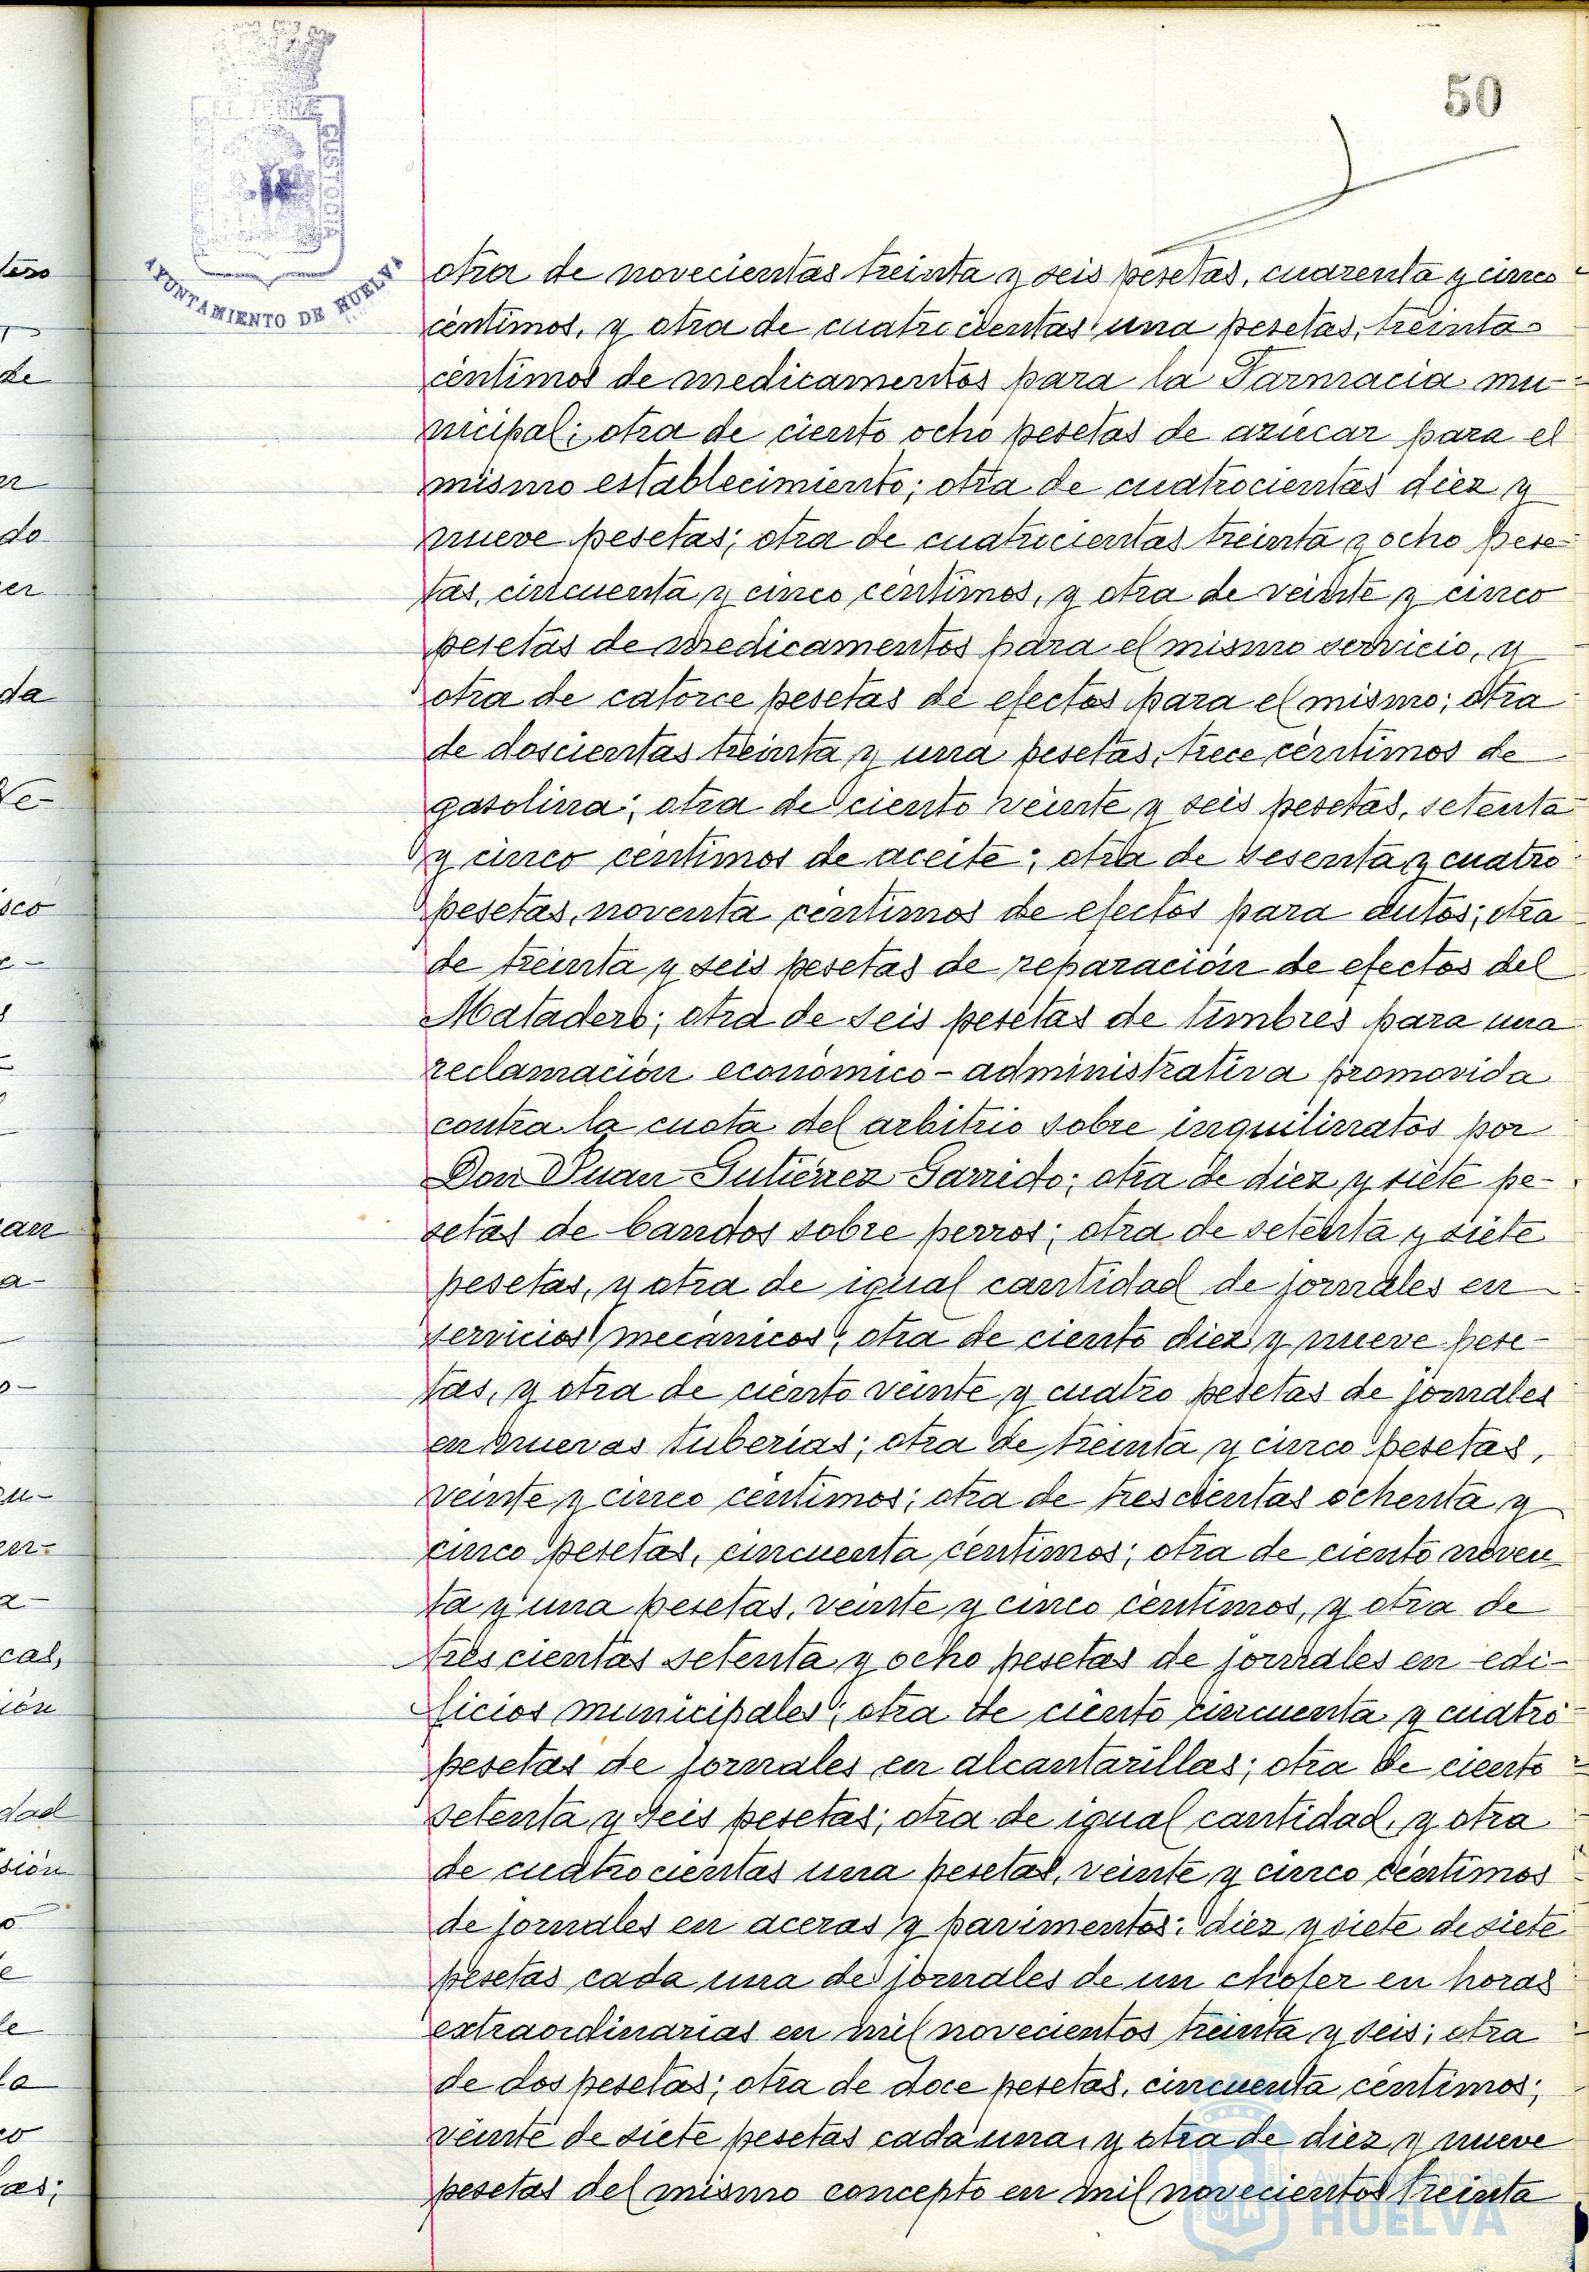 50
AYUNTAMIENTO DE HUELVA
CUSTODIA
otra de novecientas treinta y seis pesetas, cuarenta y cinco
céntimos, y otra de cuatrocientas una pesetas, treinta
céntimos de medicamentos para la Farmacia mu-
nicipal; otra de ciento ocho pesetas de azúcar para el
mismo establecimiento; otra de cuatrocientas diez y
nueve pesetas; otra de cuatrocientas treinta y ocho pese-
tas, cincuenta y cinco céntimos, y otra de veinte y cinco
pesetas de medicamentos para el mismo servicio, y
otra de catorce pesetas de efectos para el mismo; otra
de doscientas treinta y una pesetas, trece céntimos de
gasolina; otra de ciento veinte y seis pesetas, setenta
y cinco céntimos de aceite; otra de sesenta y cuatro
pesetas, noventa céntimos de efectos para autos; otra
de treinta y seis pesetas de reparación de efectos del
Matadero; otra de seis pesetas de timbres para una
reclamación económico-administrativa promovida
contra la cuota del arbitrio sobre inquilinatos por
Don Juan Gutiérrez Garrido; otra de diez y siete pe-
setas de bandos sobre perros; otra de setenta y siete
pesetas, y otra de igual cantidad de jornales en
servicios mecánicos; otra de ciento diez y nueve pese-
tas, y otra de ciento veinte y cuatro pesetas de jornales
en nuevas tuberías; otra de treinta y cinco pesetas,
veinte y cinco céntimos; otra de trescientas ochenta y
cinco pesetas, cincuenta céntimos; otra de ciento noven
ta y una pesetas, veinte y cinco céntimos, y otra de
trescientas setenta y ocho pesetas de jornales en edi-
ficios municipales; otra de ciento cincuenta y cuatro
pesetas de jornales en alcantarillas; otra de ciento
setenta y seis pesetas; otra de igual cantidad, y otra
de cuatrocientas una pesetas, veinte y cinco céntimos
de jornales en aceras y pavimentos; diez y siete de siete
pesetas cada una de jornales de un chofer en horas
extraordinarias en mil novecientos treinta y seis; otra
de dos pesetas; otra de doce pesetas, cincuenta céntimos;
veinte de siete pesetas cada una, y otra de diez y nueve
pesetas del mismo concepto en mil novecientos treinta
Ayuntamiento de
HUELVA